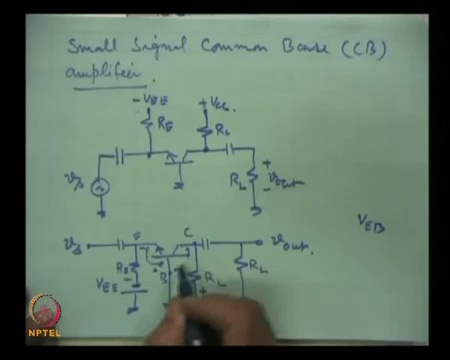 Small Signal Common Base (CB)
amplifier.
-VEE
+VCC
RE
RL
vs
RL
+
vout
-
VEB
vs
E
C
vout.
RE
VEE
-
B
RL
+
RL
NPTEL